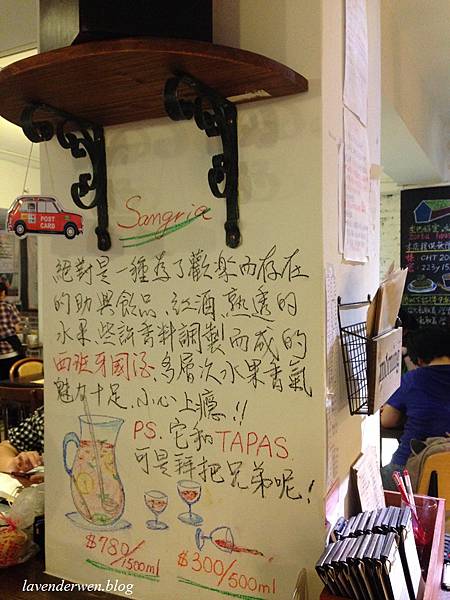 POST
CARD
Sangria
絕對是一種為了歡樂而存在
的助興飲品、紅酒、熟透的
水果、些許香料調製而成的
西班牙國酒、多層次水果香氣
魅力十足、小心上癮!!
PS. 它和TAPAS
可是拜把兄弟呢!
$780/1500ml
$300/500ml
lavenderwen.blog